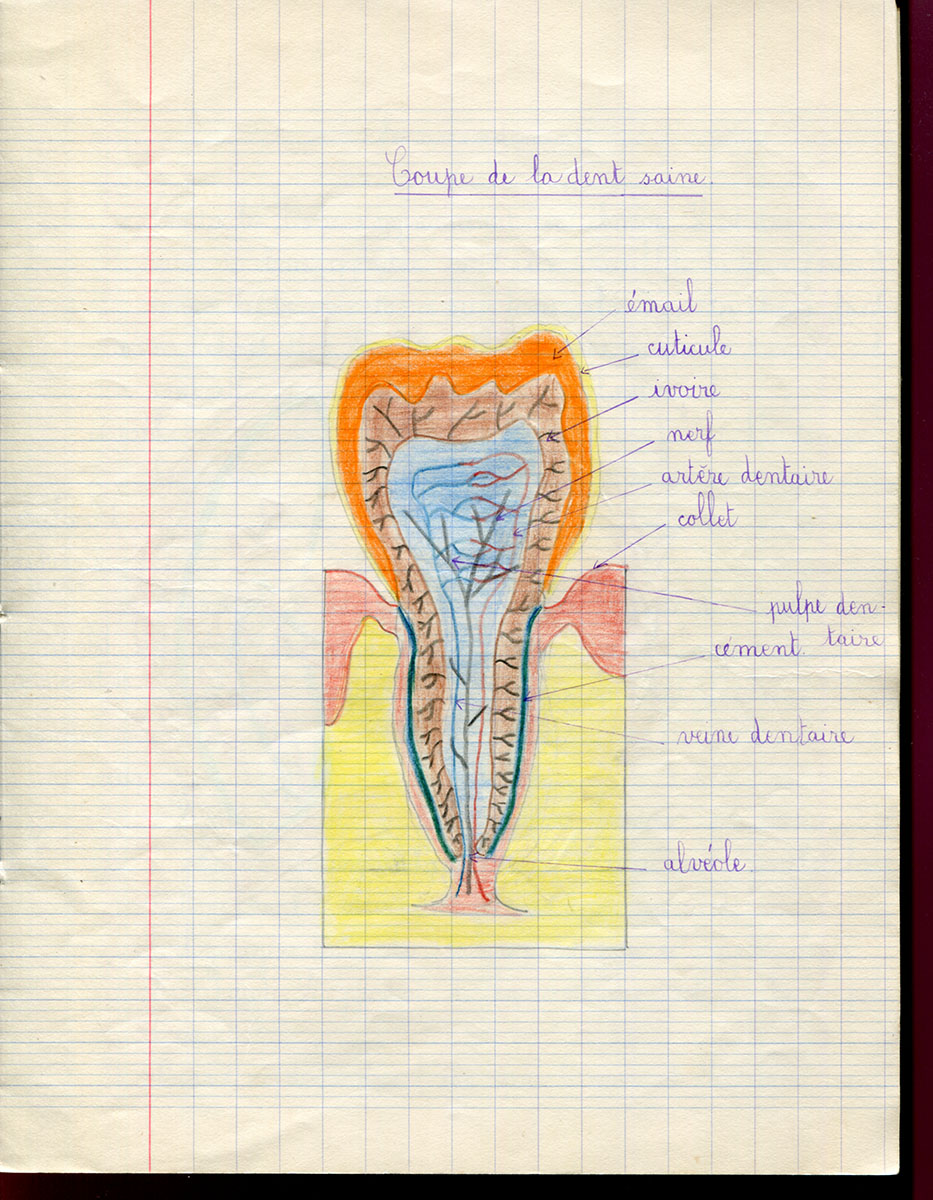 Coupe de la dent saine.
émail
cuticule
ivoire
nerf
artère dentaire
collet
pulpe den-
taire
cément.
veine dentaire
alvéole.